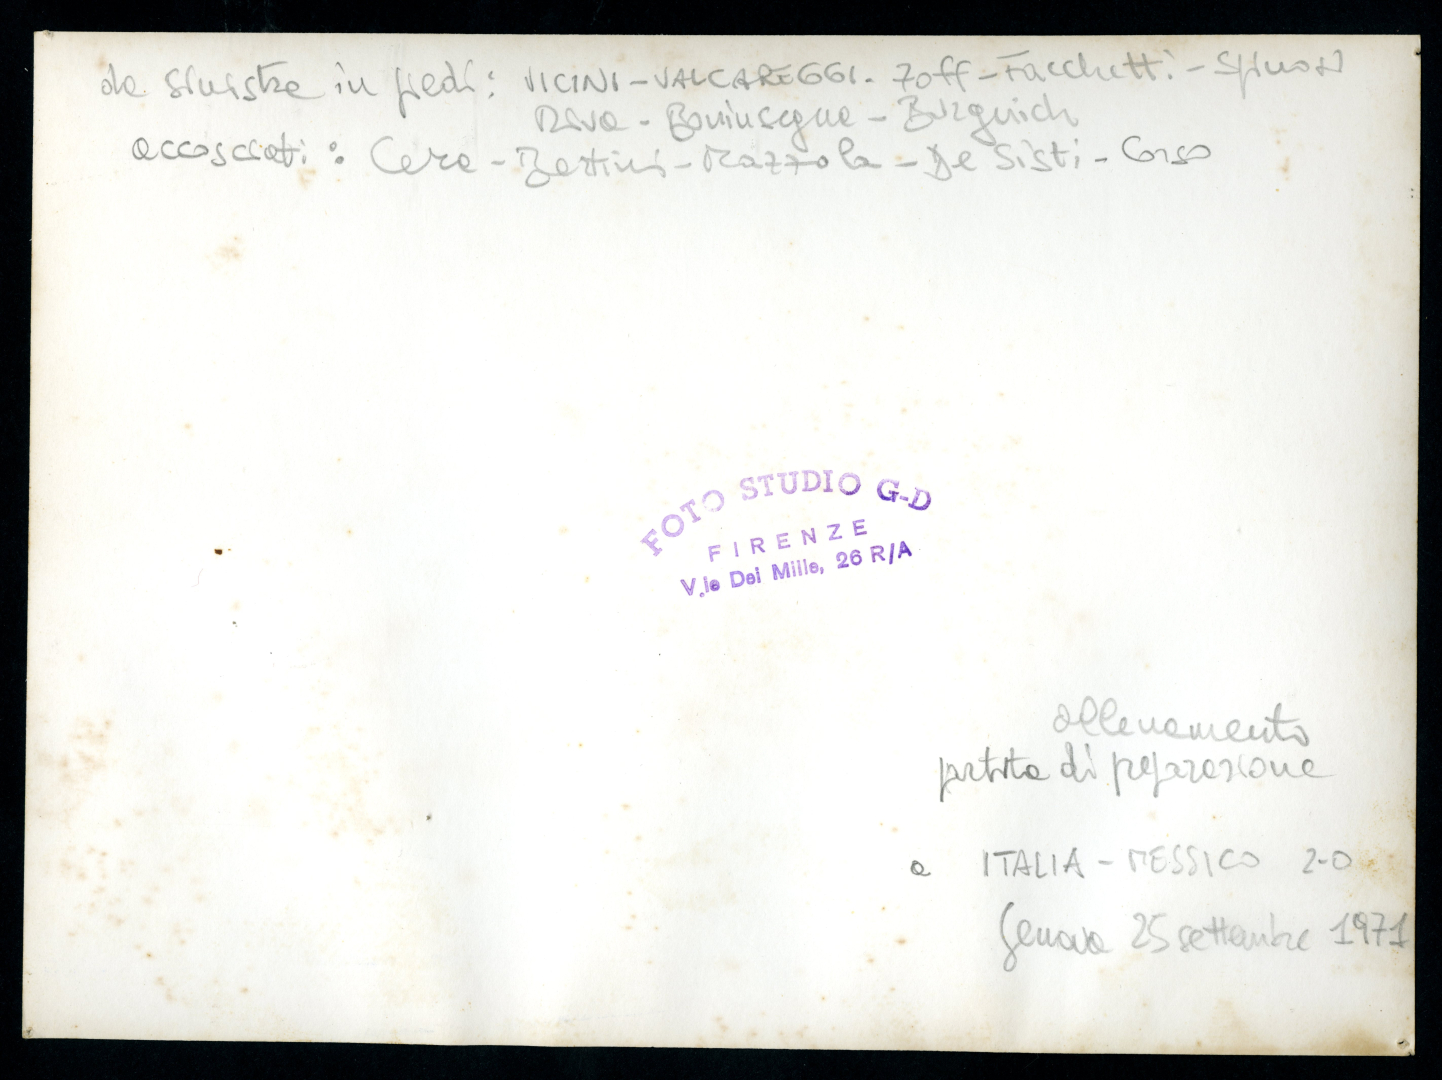 da sinistra in piedi: VICINI - VALCAREGGI - Zoff - Facchetti - Spinosi
Riva - Boninsegna - Burgnich
accosciati: Cera - Bertini - Mazzola - De Sisti - Corso
FOTO STUDIO G-D
FIRENZE
V.le Dei Mille, 26 R/A
allenamento
partita di preparazione
a ITALIA - MESSICO 2-0
Genova 25 settembre 1971